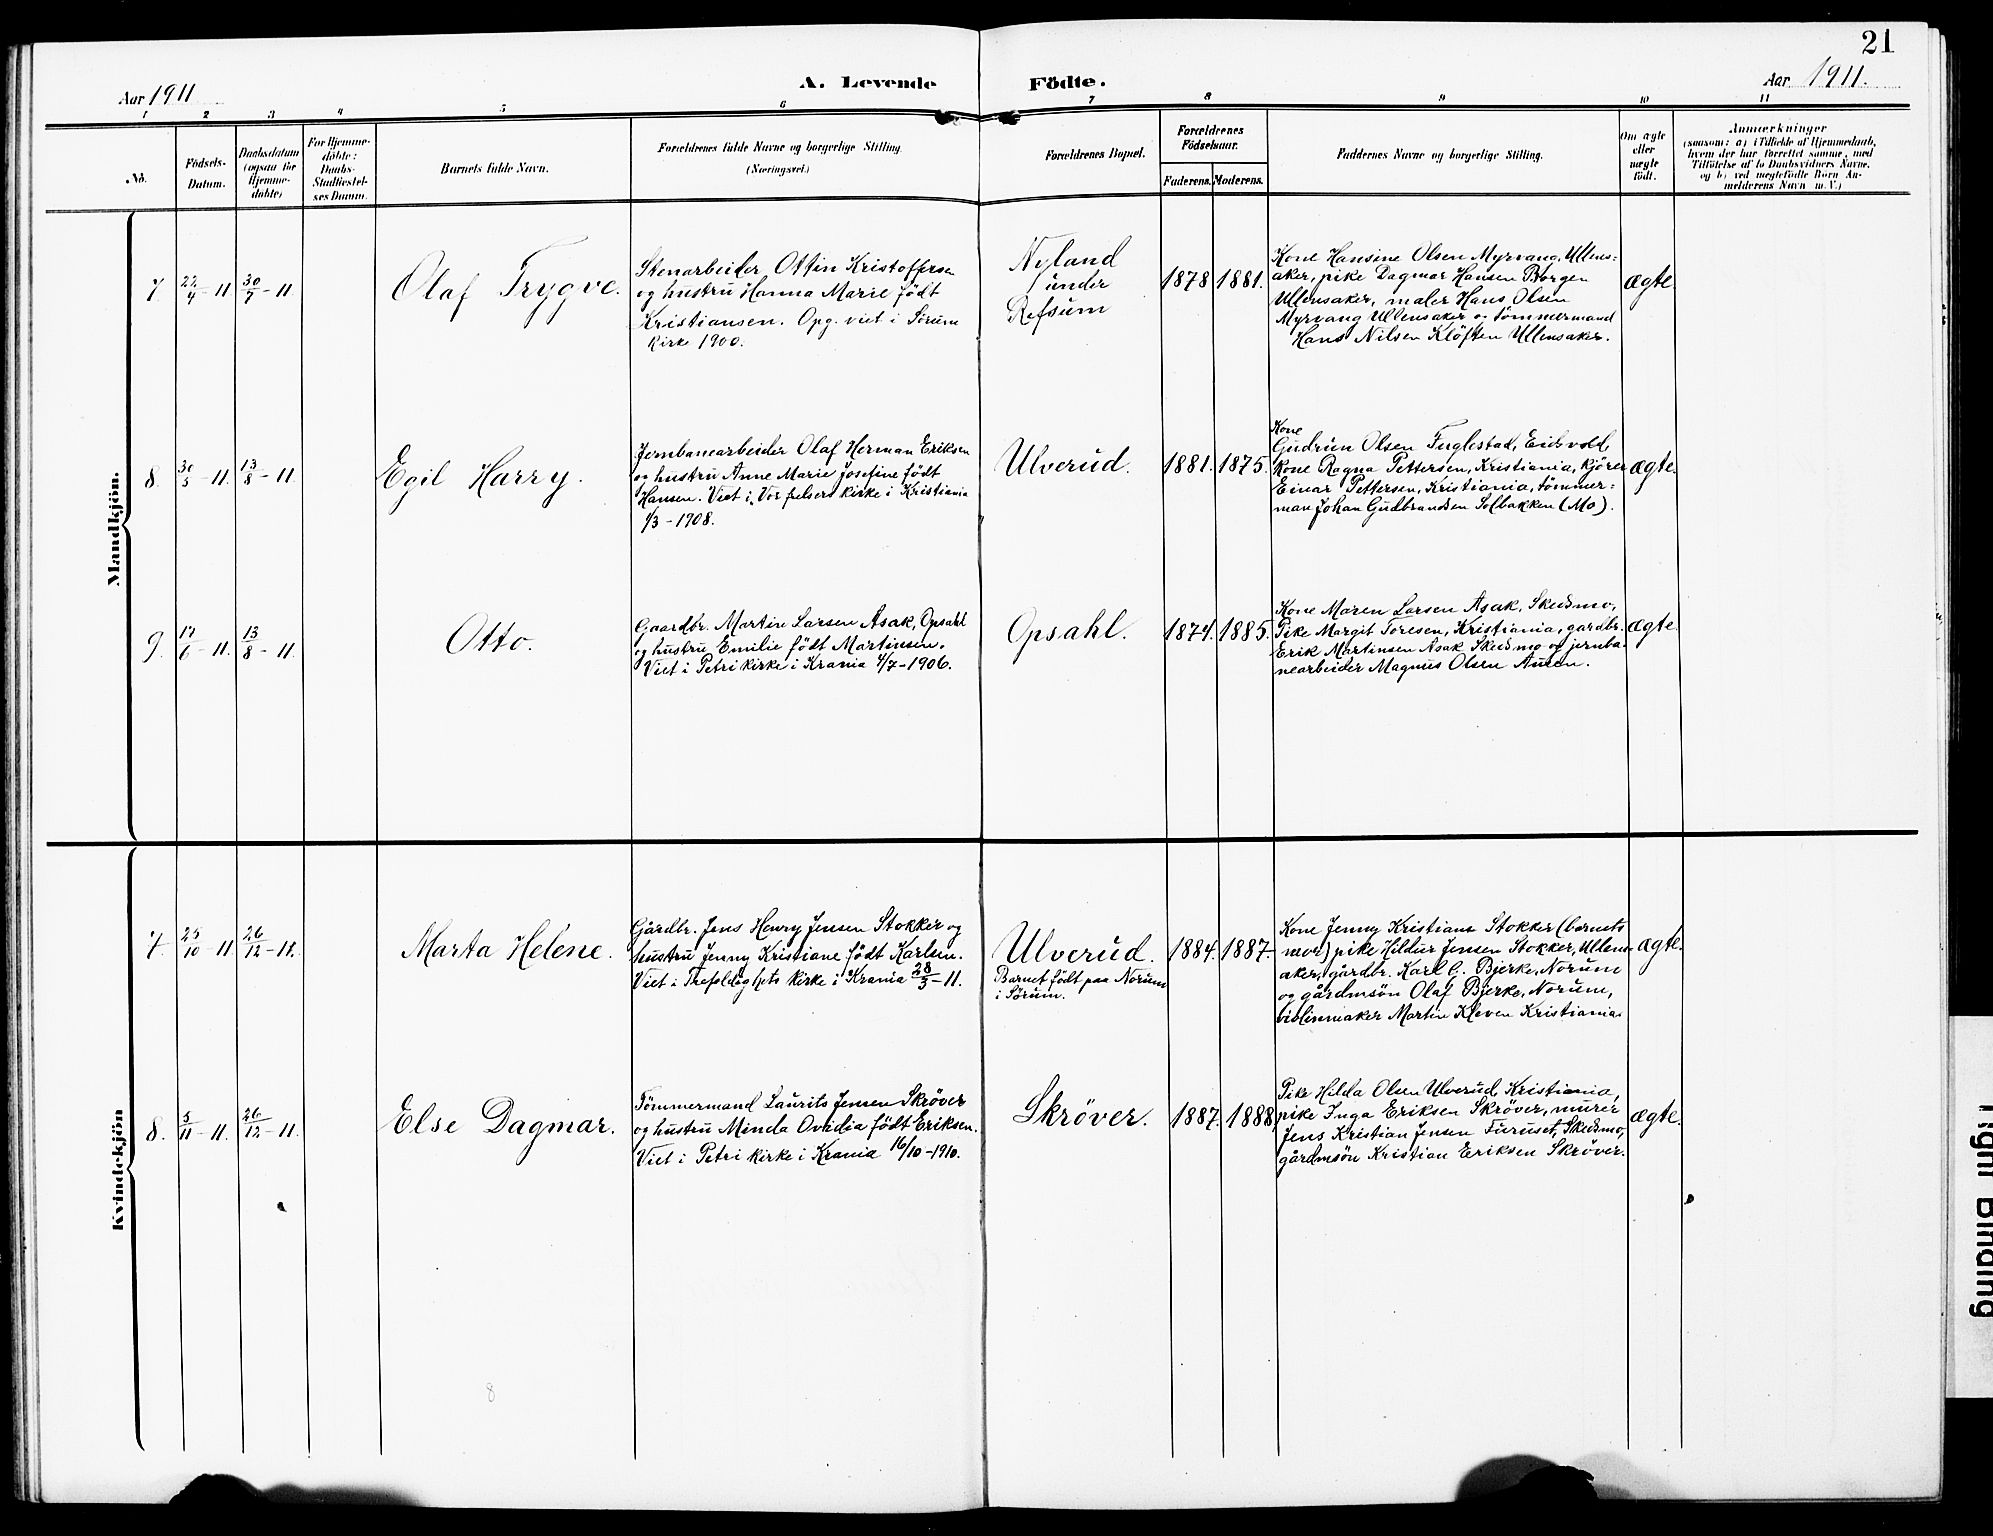 21
Aar 1911
A. Levende Födte.
Aar 1911.
1 2 3 4 5 6 7 8 9 10 11
No.
Födsels-
Datum.
Daabsdatum
(ogsaa for
Hjemme-
döbte)
For Hjemme-
döbte:
Daabs-
Stadfæstel-
ses Datum.
Barnets fulde Navn.
Forældrenes fulde Navne og borgerlige Stilling.
(Næringsvei.)
Forældrenes Bopæl.
Forældrenes
Födselsaar.
Faderens. Moderens.
Faddernes Navne og borgerlige Stilling.
Om ægte
eller
uægte
födt.
Anmærkninger
(saasom: a) i Tilfælde af Hjemmedaab,
hvem der har forrettet samme, med
Tilföielse af to Daabsvidners Navne,
og b) ved uægtefödte Börn An-
melderens Navn m. V.)
Mandkjön.
7 22/4-11 30/7-11
Olaf Trygve.
Stenarbeider Ottin Kristoffersen
og hustru Hanna Marie født
Kristiansen. Opg. viet i Sørum
kirke 1900.
Nyland
under
Refsum
1878 1881.
Kone Hansine Olsen Myrvang, Ullens=
aker, pike Dagmar Hansen Borgen
Ullensaker, maler Hans Olsen
Myrvang Ullensaker og tømmermand
Hans Nilsen Kløften Ullensaker.
ægte.
8. 30/5-11. 13/8-11.
Egil Harry.
Jernbanearbeider Olaf Herman Eriksen
og hustru Anne Marie Josefine født
Hansen. Viet i Vor frelsers kirke i Kristiania
1/3-1908.
Ulverud.
1881. 1875.
Kone
Gudrun Olsen Fuglestad, Eidsvold,
kone Ragna Pettersen, Kristiania, kjører
Einar Pettersen, Kristiania, tømmer=
man Johan Gudbrandsen Solbakken (Mo).
ægte.
9. 17/6-11. 13/8-11.
Otto.
Gaardbr. Martin Larsen Asak, Opsahl
og hustru Emilie født Martinsen.
Viet i Petri kirke i Krania 4/7-1906.
Opsahl.
1874. 1885.
Kone Maren Larsen Asak, Skedsmo,
Pike Margit Toresen, Kristiania, gardbr.
Erik Martinsen Asak Skedsmo og jernba=
nearbeider Magnus Olsen Auen.
ægte.
Kvindekjön
7. 25/10-11 26/12-11.
Marta Helene.
Gårdbr. Jens Henry Jensen Stokker og
hustru Jenny Kristiane født Karlsen.
Viet i Trefoldighets kirke i Krania 28/3-11.
Ulverud.
Barnet født paa Norum
i Sørum.
1884. 1887.
Kone Jenny Kristiane Stokker (barnets
mor) pike Hildur Jensen Stokker, Ullens-
aker, gårdbr. Karl G. Bjerke, Norum
og gårdmsøn Olaf Bjerke, Norum,
violinmaker Martin Kleven Kristiania.
ægte.
8. 5/11-11. 26/12-11.
Else Dagmar.
Tømmermand Laurits Jensen Skrøver
og hustru Minda Ovidia født Eriksen.
Viet i Petri kirke i Krania 16/10-1910.
Skrøver.
1887. 1888.
Pike Hilda Olsen Ulverud, Kristiania,
pike Inga Eriksen Skrøver, murer
Jens Kristian Jensen Furuset, Skedsmo,
gårdmsøn Kristian Eriksen Skrøver.
ægte.
8
Tight Binding